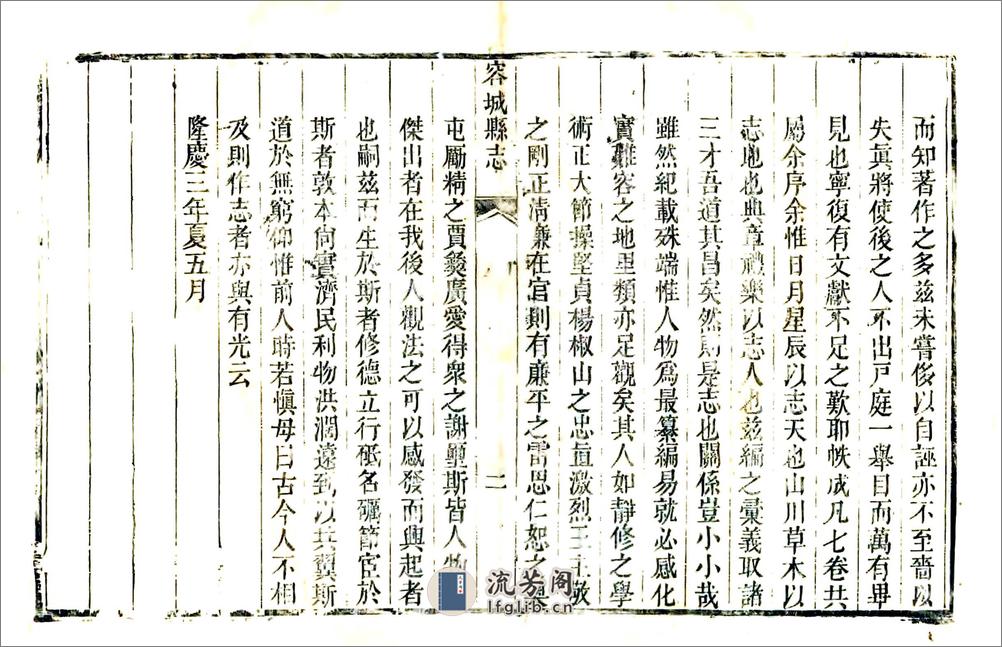 而知著作之多茲未嘗侈以自誣亦不至嗇以
失眞將使後之人不出戸庭一舉目而萬有畢
見也寧復有文獻不足之歎耶帙成凡七卷共
屬余序余惟日月星辰以志天也山川草木以
志地也典章禮樂以志人也茲編之彙義取諸
三才吾道其昌矣然則是志也關係豈小小哉
雖然紀載殊端惟人物爲最纂編易就必感化
實難容之地里類亦足觀矣其人如静修之學
術正大節操堅貞楊椒山之忠直激烈王敬
之剛正清廉在官則有廉平之雷思仁恕之
容城縣志
二
屯勵精之賈錢廣愛得衆之謝璽斯皆人物
傑出者在我後人觀法之可以感發而興起者
也嗣茲而生於斯者修德立行砥名礪節宦於
斯者敦本尙實濟民利物洪濶遠到以共翼斯
道於無窮仰惟前人時若愼毋曰古今人不相
及則作志者亦與有光云
隆慶三年夏五月
流芳阁
lfglib.cn